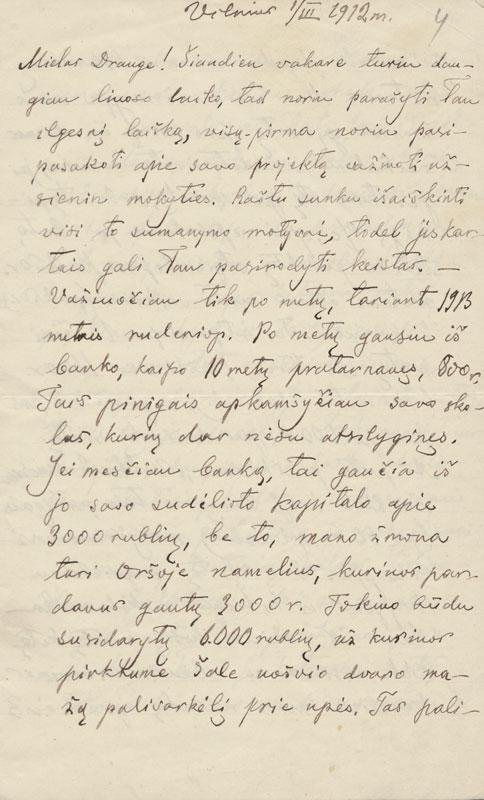 Vilnius 1/III 1912 m. 4
Mielas Drauge! Šiandien vakare turiu dau-
giau liuoso laiko, tad noriu parašyti Tau
ilgesnį laišką, visų-pirma noriu pasi-
pasakoti apie savo projektą važiuoti už-
sienin mokyties. Raštu sunku išaiškinti
visi to sumanymo motyvai, todėl jis kar-
tais gali Tau pasirodyti keistas. —
Važiuočiau tik po metų, tariant 1913
metais rudeniop. Po metų gausiu iš
banko, kaipo 10 metų pratarnavęs, 800 r.
Tais pinigais apkamšyčiau savo sko-
las, kurių dar nesu atsilyginęs.
Jei mesčiau banką, tai gaučia iš
jo savo sudėlioto kapitalo apie
3000 rublių, be to, mano žmona
turi Oršoje namelius, kuriuos par-
davus gautų 3000 r. Tokiuo būdu
susidarytų 6.000 rublių, už kuriuos
pirktume šale uošvio dvaro ma-
žą palivarkėlį prie upės. Tas pali-